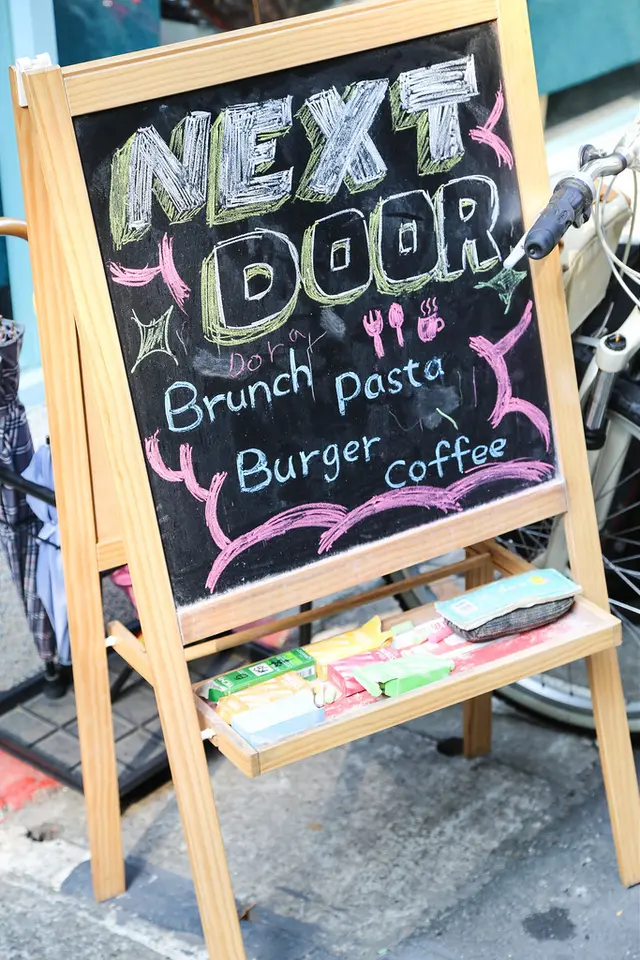 NEXT
DOOR
Dora
Brunch pasta
Burger coffee